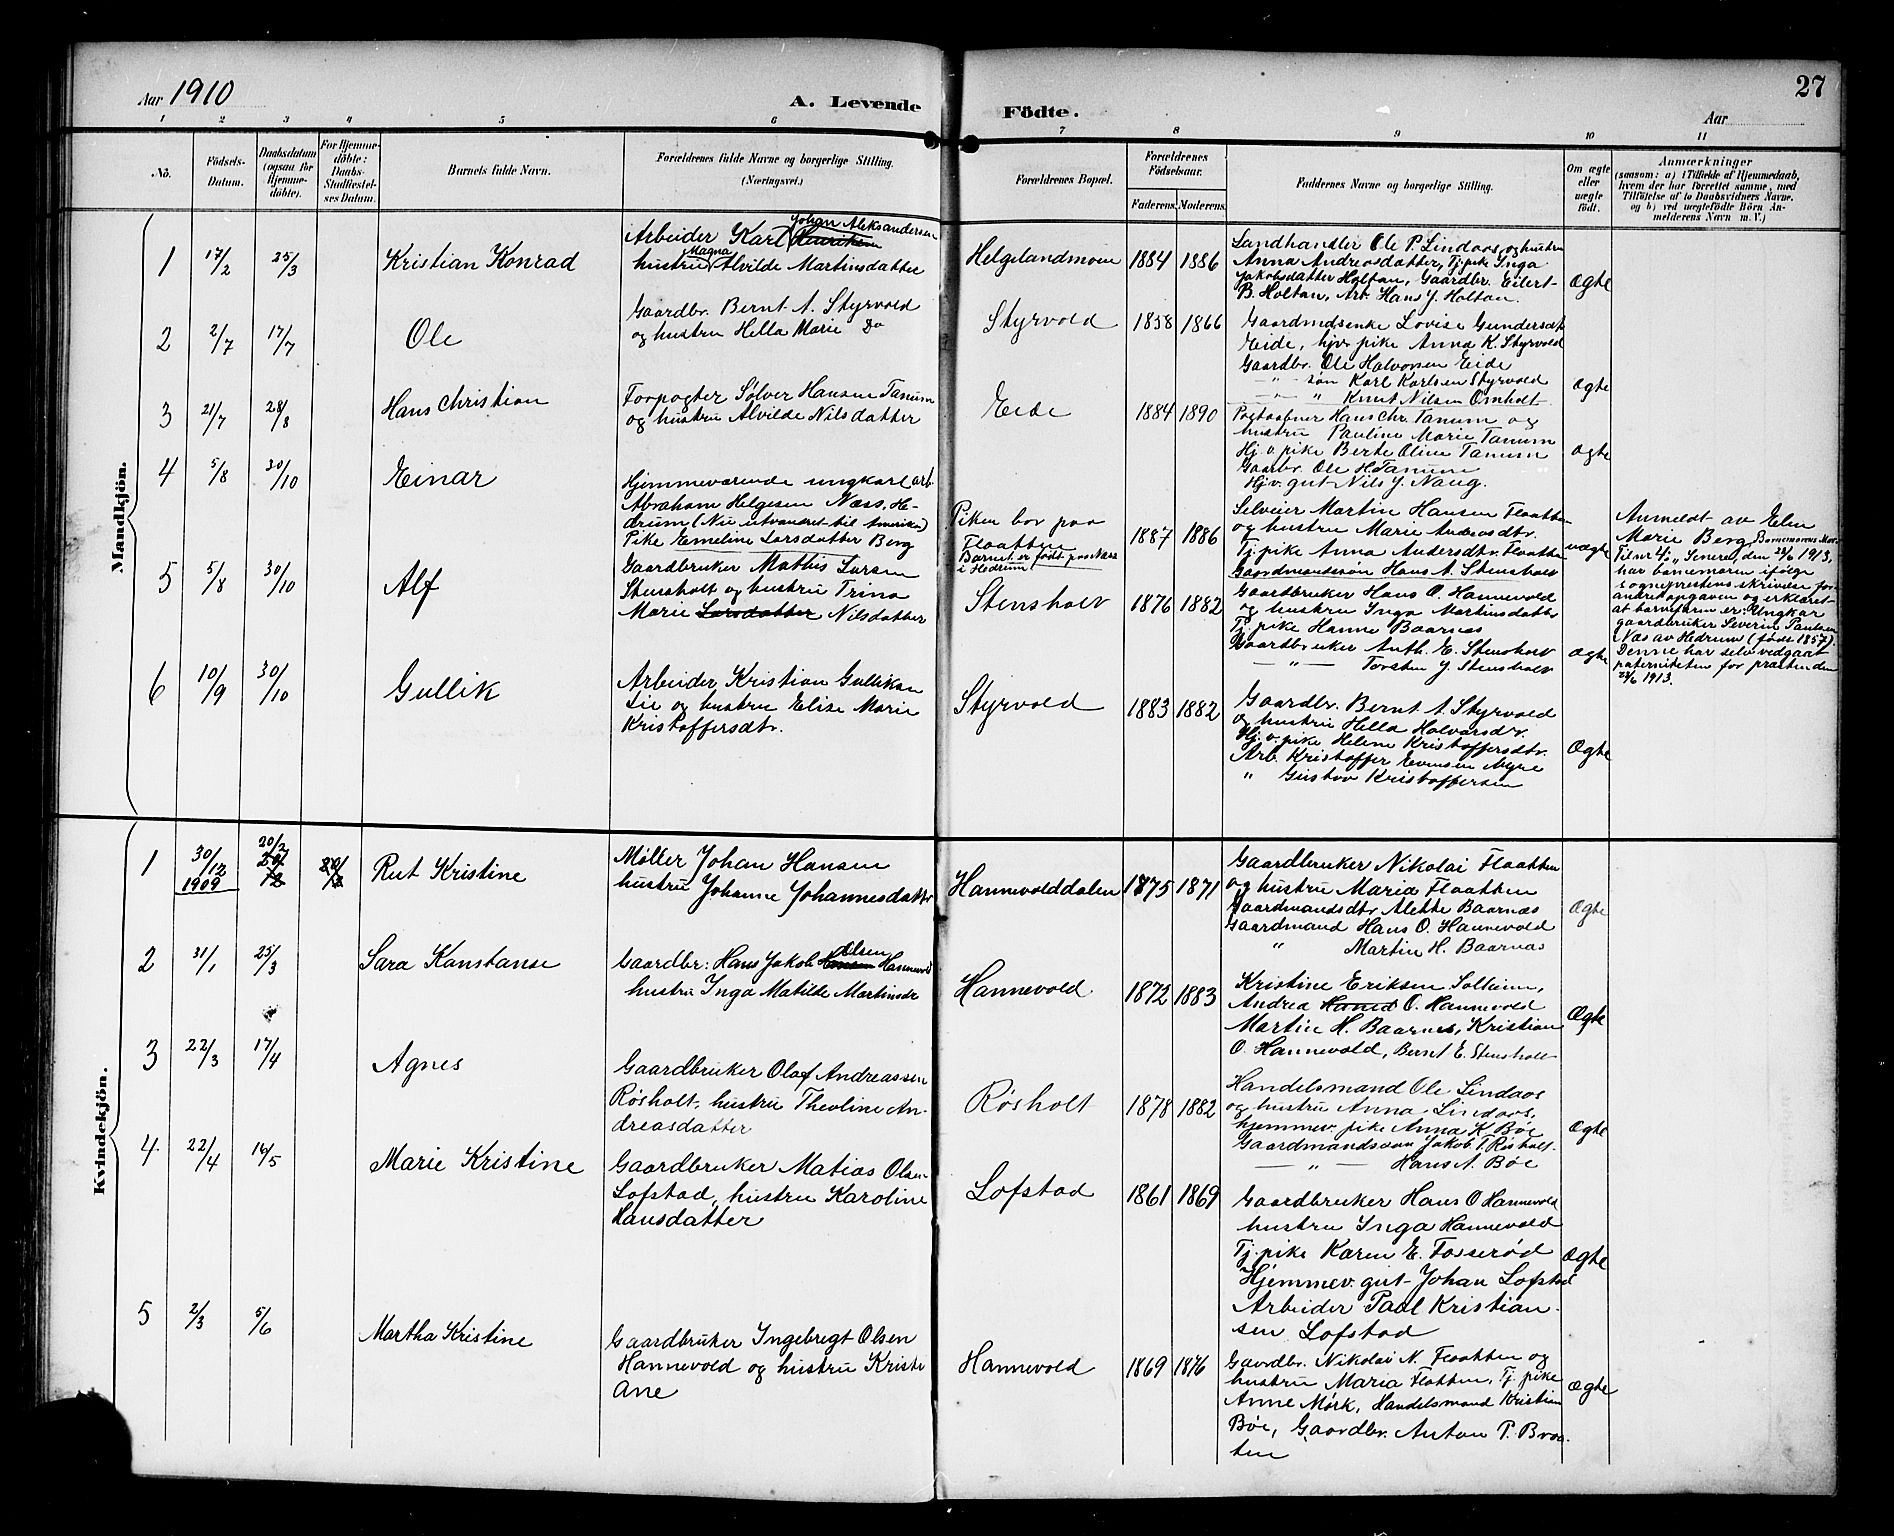 Aar 1910
A. Levende
Födte.
Aar
27
1 2 3 4 5 6 7 8 9 10 11
Nô.
Födsels-
Datum.
Daabsdatum
(ogsaa for
Hjemme-
döbte).
For Hjemme-
döbte:
Daabs-
Stadfæstel-
ses Datum.
Barnets fulde Navn.
Forældrenes fulde Navne og borgerlige Stilling.
(Næringsvei.)
Forældrenes Bopæl.
Forældrenes
Födselsaar.
Faderens. Moderens.
Faddernes Navne og borgerlige Stilling.
Om ægte
eller
uægte
födt.
Anmærkninger
(saasom: a) i Tilfælde af Hjemmedaab,
hvem der har forrettet samme, med
Tilföielse af to Daabsvidners Navne.
og b) ved uægtefödte Börn An-
melderens Navn m. V.)
Mandkjön.
1
17/2
25/3
Kristian Konrad
Johan Aleksandersen
Arbeider Karl Henriksen
Magna
hustru Alvilde Martinsdatter
Helgelandmoen
1884 1886
Landhandler Ole P. Lindaas og hustru
Anna Andreasdatter, Tj. pike Inga
Jakobsdatter Holtan, Gaardbr. Eilert
B. Holtan, Arb. Hans J. Holtan.
Ægte
2
2/7
17/7
Ole
Gaardbr. Bernt A. Styrvold
og hustru Hella Marie Do
Styrvold
1858 1866
Gaardmdsenke Lovise Gundersdt
Eide, hjv. pike Anna K. Styrvold
Gaardbr. Ole Halvorsen Eide
— " — søn Karl Karlsen Styrvold
— " — " Knut Nilsen Omholt
Ægte
3
21/7
28/8
Hans Christian
Forpagter Sølver Hansen Tanum
og hustru Alvilde Nilsdatter
Eide
1884 1890
Postaabner Hans Chr. Tanum og
hustru Pauline Marie Tanum
Hj. v. pike Berte Oline Tanum
Gaarbr. Ole H. Tanum
Hjv. gut Nils J. Naug.
Ægte
4
5/8
30/10
Einar
Hjemmeværende ungkarl arb.
Abraham Helgesen Næss, He-
drum (Nu utvandret til Amerika)
Pike Emeline Larsdatter Berg
Piken bor paa
Flaatten
Barnet er født paa Næss
i Hedrum
1887 1886
Selveier Martin Hansen Flaatten
og hustru Marie Andersdtr.
Tj. pike Anna Andersdtr. Flaatten
Gaardmandssøn Hans A. Stensholt
uægte
Anmeldt av Elen
Marie Berg Barnemorens Mor
Til nr 4: Senere, den 24/6 1913,
har barnemoren ifølge
sogneprestens skrivelse for-
andret opgaven og erklæret
at barnefaren er: Ungkar
gaardbruker Severin Paulsen
Næs av Hedrum (født 1857).
Denne har selv vedgaat
paterniteten for præsten den
24/6 1913.
5
5/8
30/10
Alf
Gaardbruker Mathis Larsen
Stensholt og hustru Trina
Marie Larsdatter Nilsdatter
Stensholt
1876 1882
Gaardbruker Hans O. Hannevold
og hustru Inga Martinsdatter
Tj. pike Hanne Baarnes
Gaardbruker Anth. E. Stensholt
— " — Torsten J. Stensholt
Ægte
6
10/9
30/10
Gullik
Arbeider Kristian Gulliksen
Lie og hustru Elise Marie
Kristoffersdtr.
Styrvold
1883 1882
Gaardbr. Bernt A. Styrvold
og hustru Hella Halvorsdtr.
Hj. v. pike Helene Kristoffersdtr.
Arb. Kristoffer Evensen Myre
" Gustav Kristoffersen
Ægte
Kvindekjön.
1
30/12
1909
20/2
20/12
20/12
Rut Kristine
Møller Johan Hansen
hustru Johanne Johannesdatter
Hannevolddalen
1875 1871
Gaardbruker Nikolai Flaatten
og hustru Maria Flaatten
Gaardmandsdtr Alette Baarnæs
Gaardmand Hans O. Hannevold
" Martin H. Baarnæs
Ægte
2
31/1
25/3
Sara Konstanse
Olsen
Gaardbr: Hans Jakob Hansen Hannevold
hustru Inga Matilde Martinsdr
Hannevold
1872 1883
Kristine Eriksen Solheim,
Andrea Hansd O. Hannevold
Martin H. Baarnes, Kristian
O. Hannevold, Bernt E. Stensholt
Ægte
3
22/3
17/4
Agnes
Gaardbruker Olaf Andreassen
Røsholt, hustru Theoline An-
dreasdatter
Røsholt
1878 1882
Handelsmand Ole Lindaas
og hustru Anna Lindaas,
hjemmev. pike Anna K. Bøe
Gaardmandssøn Jakob T. Røsholt
— " — Hans A. Bøe
Ægte
4
22/4
16/5
Marie Kristine
Gaardbruker Matias Olsen
Lofstad, hustru Karoline
Hansdatter
Lofstad
1861 1869
Gaardbruker Hans O Hannevold
hustru Inga Hannevold
Tj. pike Karen E. Fosserød
Hjemmev. gut Johan Lofstad
Arbeider Paul Kristian-
sen Lofstad
Ægte
5
2/3
5/6
Martha Kristine
Gaardbruker Ingebregt Olsen
Hannevold og hustru Kriste
Ane
Hannevold
1869 1876
Gaardbr. Nikolai N. Flaatten og
hustru Maria Flatten, Tj. pike
Anne Mørk, Handelsmand Kristian
Bøe, Gaardbr. Anton P. Braa-
ten
Ægte